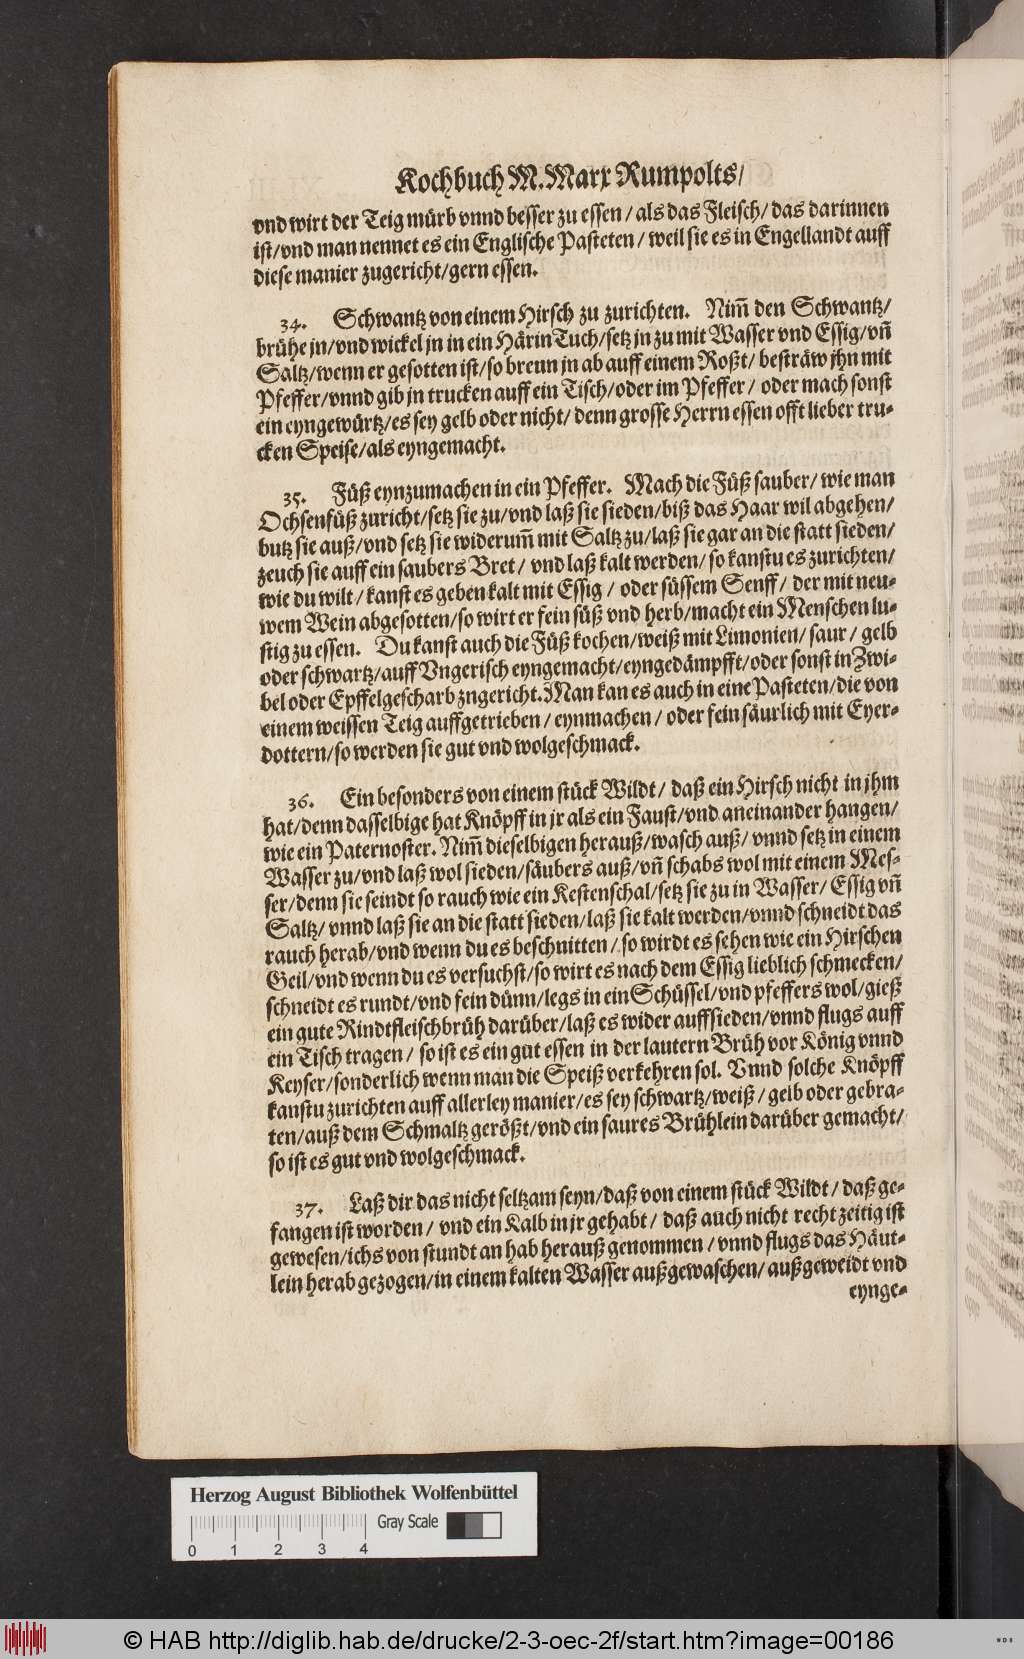 Kochbuch M. Marx Rumpolts/
vnd wirt der Teig mürb vnnd besser zu essen / als das Fleisch/ das darinnen
ist/vnd man nennet es ein Englische Pasteten / weil sie es in Engellandt auff
diese manier zugericht/gern essen.
34. Schwantz von einem Hirsch zu zurichten. Nim̃ den Schwantz/
brühe jn/vnd wickel jn in ein Härin Tuch/setz jn zu mit Wasser vnd Essig/vñ
Saltz/wenn er gesotten ist/so breun jn ab auff einem Roßt/ besträw jhn mit
Pfeffer/vnnd gib jn trucken auff ein Tisch/oder im Pfeffer / oder mach sonst
ein eyngewürtz/es sey gelb oder nicht/ denn grosse Herrn essen offt lieber tru-
cken Speise/als eyngemacht.
35. Füß eynzumachen in ein Pfeffer. Mach die Füß sauber/ wie man
Ochsenfüß zuricht/setz sie zu/vnd laß sie sieden/biß das Haar wil abgehen/
butz sie auß/vnd setz sie widerum̃ mit Saltz zu/laß sie gar an die statt sieden/
zeuch sie auff ein saubers Bret / vnd laß kalt werden/ so kanstu es zurichten/
wie du wilt / kanst es geben kalt mit Essig / oder süssem Senff / der mit neu-
wem Wein abgesotten/so wirt er fein süß vnd herb/macht ein Menschen lu-
stig zu essen. Du kanst auch die Füß kochen/weiß mit Limonien/ saur / gelb
oder schwartz/auff Vngerisch eyngemacht/eyngedämpfft/oder sonst in Zwi-
bel oder Epffelgescharb zngericht. Man kan es auch in eine Pasteten/die von
einem weissen Teig auffgetrieben / eynmachen / oder fein säurlich mit Eyer-
dottern/so werden sie gut vnd wolgeschmack.
36. Ein besonders von einem stück Wildt / daß ein Hirsch nicht in jhm
hat/denn dasselbige hat Knöpff in jr als ein Faust/vnd aneinander hangen/
wie ein Paternoster. Nim̃ dieselbigen herauß/wasch auß/ vnnd setz in einem
Wasser zu/vnd laß wol sieden/säubers auß/vñ schabs wol mit einem Mes-
ser/denn sie seindt so rauch wie ein Kestenschal/setz sie zu in Wasser/ Essig vñ
Saltz/ vnnd laß sie an die statt sieden/laß sie kalt werden/vnnd schneidt das
rauch herab/vnd wenn du es beschnitten / so wirdt es sehen wie ein Hirschen
Geil/vnd wenn du es versuchst/so wirt es nach dem Essig lieblich schmecken/
schneidt es rundt/vnd fein dünn/legs in ein Schüssel/vnd pfeffers wol/gieß
ein gute Rindtfleischbrüh darüber/laß es wider auffsieden/vnnd flugs auff
ein Tisch tragen / so ist es ein gut essen in der lautern Brüh vor König vnnd
Keyser/sonderlich wenn man die Speiß verkehren sol. Vnnd solche Knöpff
kanstu zurichten auff allerley manier/es sey schwartz/weiß / gelb oder gebra-
ten/auß dem Schmaltz gerößt/vnd ein saures Brühlein darüber gemacht/
so ist es gut vnd wolgeschmack.
37. Laß dir das nicht seltzam seyn/daß von einem stück Wildt / daß ge-
fangen ist worden / vnd ein Kalb in jr gehabt / daß auch nicht recht zeitig ist
gewesen/ichs von stundt an hab herauß genommen / vnnd flugs das Häut-
lein herab gezogen/in einem kalten Wasser außgewaschen/ außgeweidt vnd
eynge-
Herzog August Bibliothek Wolfenbüttel
Gray Scale
0 1 2 3 4
© HAB http://diglib.hab.de/drucke/2-3-oec-2f/start.htm?image=00186